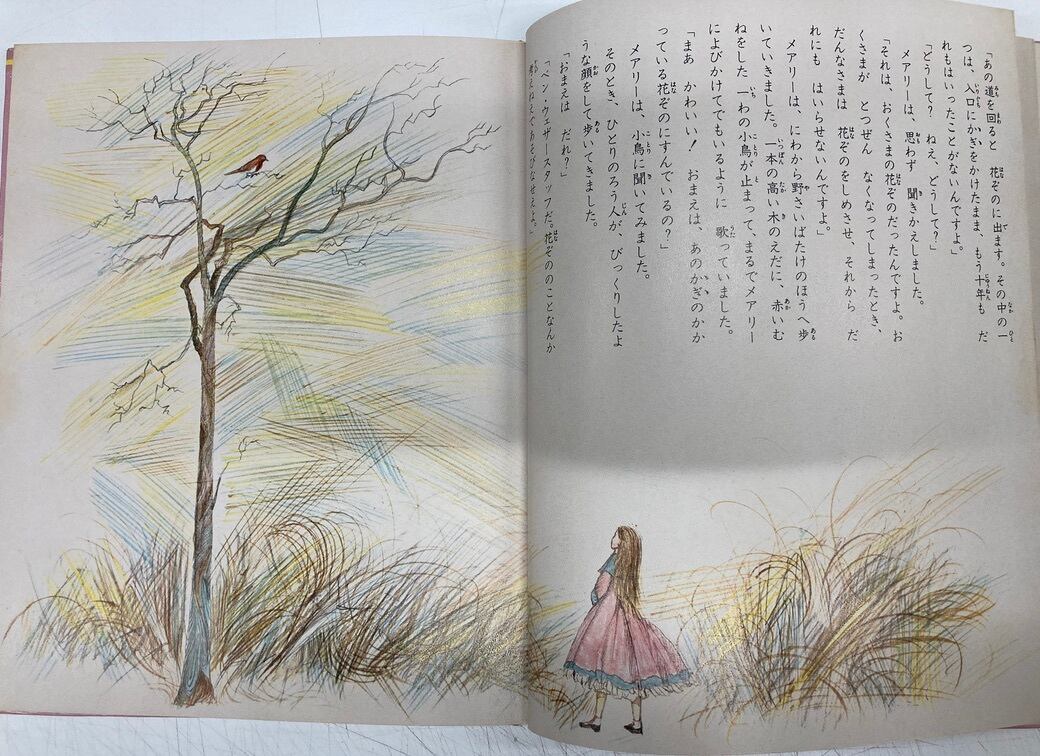 「あの道を回ると　花ぞのに出ます。その中の一
つは、入口にかぎをかけたまま、もう十年も　だ
れもはいったことがないんですよ。
「どうして？　ねえ、どうして？」
メアリーは、思わず　聞きかえしました。
「それは、おくさまの花ぞのだったんですよ。お
くさまが　とつぜん　なくなってしまったとき、
だんなさまは　花ぞのをしめさせ、それから　だ
れにも　はいらせないんですよ」
メアリーは、にわから野さいばたけのほうへ歩
いていきました。一本の高い木のえだに、赤いむ
ねをした一わの小鳥が止まって、まるでメアリー
によびかけてでもいるように　歌っていました。
「まあ　かわいい！　おまえは、あのかぎのかか
っている花ぞのにすんでいるの？」
メアリーは、小鳥に聞いてみました。
そのとき、ひとりのろう人が、びっくりしたよ
うな顔をして歩いてきました。
「おまえは　だれ？」
「ベン・ウェザースタッフだ。花ぞののことなんか
考えねえであそびなせえよ。」